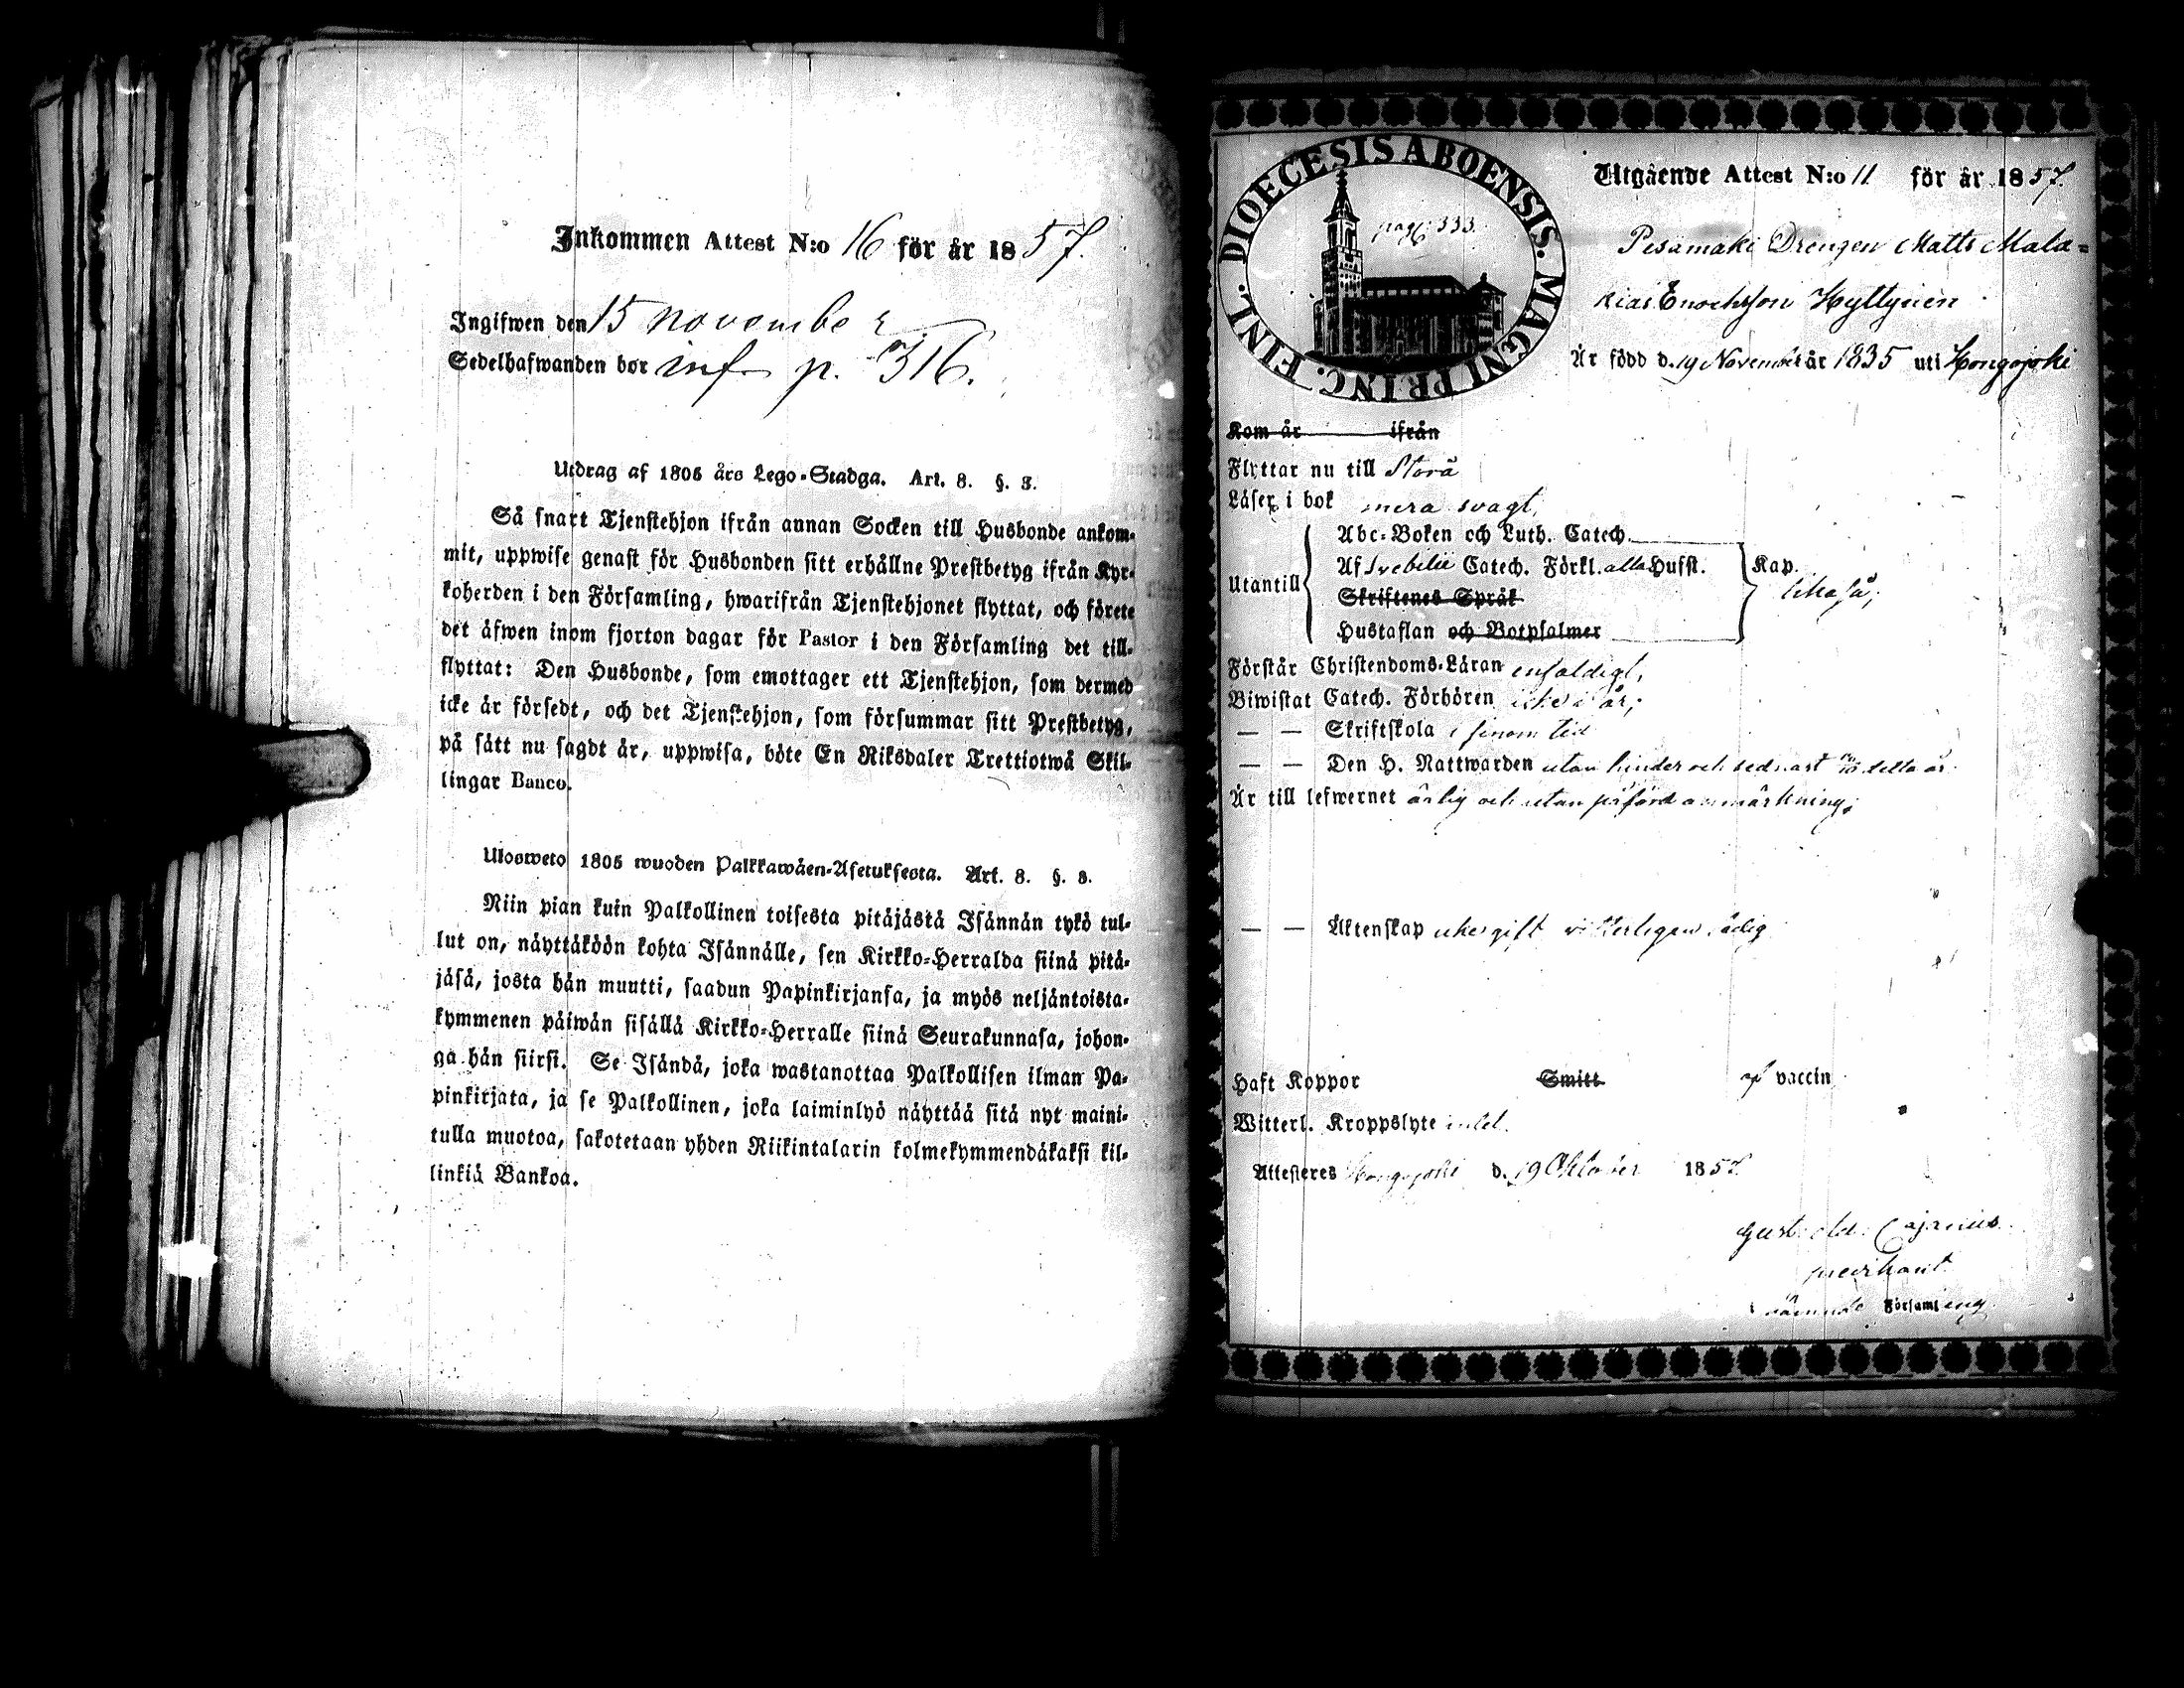 Inkommen Attest N:o 16 för år 1857.
Ingifwen den 15 november
Sedelhafwanden bor inf p. 316.
Utdrag af 1805 års Lego-Stadga. Art. 8. §. 3.
Så snart Tjenstehjon ifrån annan Socken till Husbonde ankom-
mit, uppwise genast för Husbonden sitt erhållne Prestbetyg ifrån Kyr-
koherden i den Församling, hwarifrån Tjenstehjonet flyttat, och förete
det äfwen inom fjorton dagar för Pastor i den Församling det till-
flyttat: Den Husbonde, som emottager ett Tjenstehjon, som dermed
icke är försedt, och det Tjenstehjon, som försummar sitt Prestbetyg,
på sätt nu sagdt är, uppwisa, böte En Riksdaler Trettiotwå Skil-
lingar Banco.
Ulosweto 1805 wuoden Palkkawäen-Asetuksesta. Art. 8. §. 3.
Niin pian kuin Palkollinen toisesta pitäjästä Isännän tykö tul-
lut on, näyttäköön kohta Isännälle, sen Kirkko-Herralda siinä pitä-
jäsä, josta hän muutti, saadun Papinkirjansa, ja myös neljäntoista-
kymmenen päiwän sisällä Kirkko-Herralle siinä Seurakunnasa, johon-
ga hän siirsi. Se Isändä, joka wastanottaa Palkollisen ilman Pa-
pinkirjata, ja se Palkollinen, joka laiminlyö näyttää sitä nyt maini-
tulla muotoa, sakotetaan yhden Riikintalarin kolmekymmendäkaksi kil-
linkiä Bankoa.
DIOECESIS ABOENSIS. MAGNI PRINC. FINL.
pag. 333.
Utgående Attest N:o 11 för år 1857.
Pesämäki Drengen Matts Mala=
kias Enochsson Hyttynen
Är född d. 19 November år 1835 uti Hongojoki
Kom år ifrån
Flyttar nu till Storå
Läser i bok mera svagt,
Abc-Boken och Luth. Catech.
Utantill Af Svebilii Catech. Förkl. alla Hufst. Kap. likaså;
Skriftenes Språk
Hustaflan och Botpsalmer
Förstår Christendoms-Läran enfaldigt,
Biwistat Catech. Förhören i år;
— — Skriftskola i sinom tid
— — Den H. Nattwarden utan hinder och sednast detta år.
Är till lefwernet ärlig och utan påförd anmärkning;
— — Äktenskap icke gift witterligen ledig
Haft Koppor Smitt af vaccin
Witterl. Kroppslyte intet.
Attesteres Hongojoki d. 19 Oktober 1857.
Gust. Ad. Cajanus
predikant
i nämnde Församling.